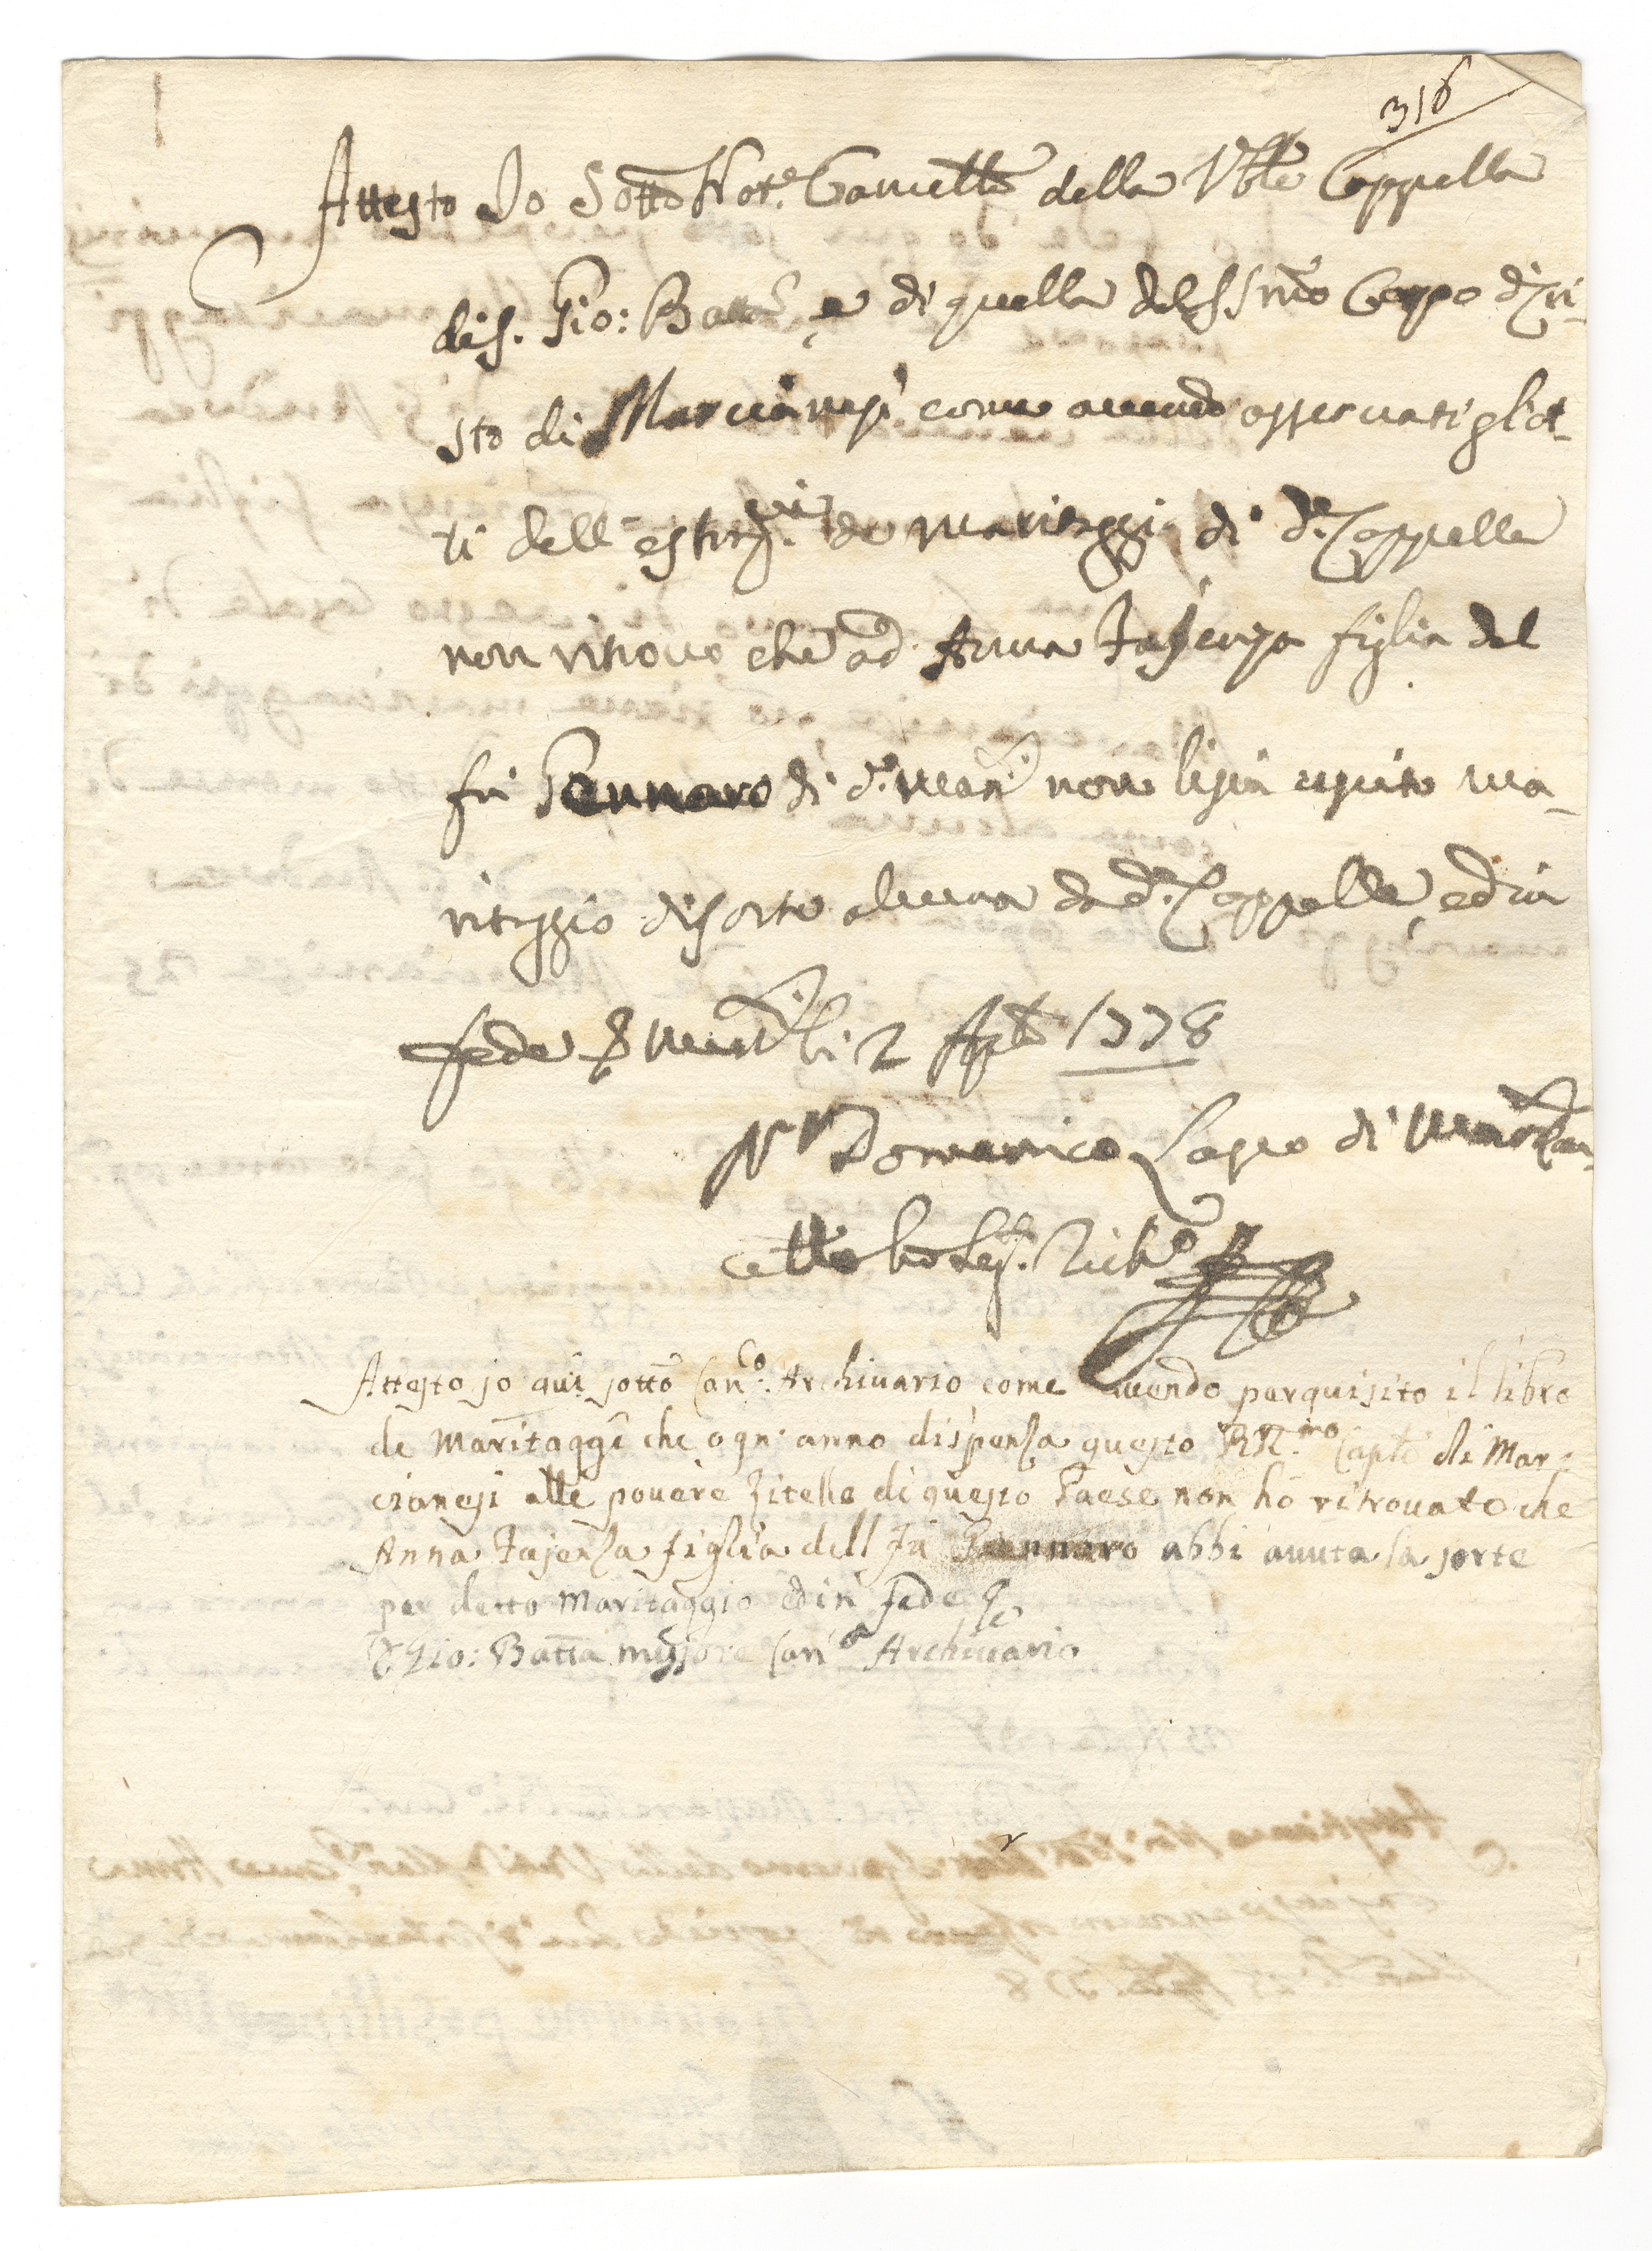 316
Attesto Io Sotto Not.r Cancell.e della V.ble Cappella
di S. Gio: Batta, e di quella del SS.mo Corpo di Cri-
sto di Marcianesi, come avendo osservati gl'at-
ti dell' estraz.ni de maritaggi di d.e Cappelle
non ritrovo che ad Anna Tasenza figlia del
fù Gennaro di d.o Marc.si non li sia uscito ma-
ritaggio di sorte alcuna da d.e Cappelle, ed in
fede li 2 Ap.le 1778
N.r Domenico di
ho
Attesto jo quì sotto Can.co Archivario come avendo perquisito il libro
de Maritaggi che ogn' anno dispenza questo RR.mo Cap.lo di Mar-
cianesi alle povere Zitelle di questo Paese non hò ritrovato che
Anna Tasenza figlia dell fù Gennaro abbi avuta la sorte
per detto Maritaggio ed in fede
Gio: Batta Can.co Archivario